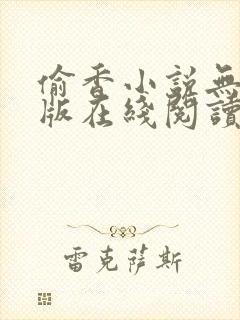 偷香小説無
版在綫閱讀
雷克薩斯